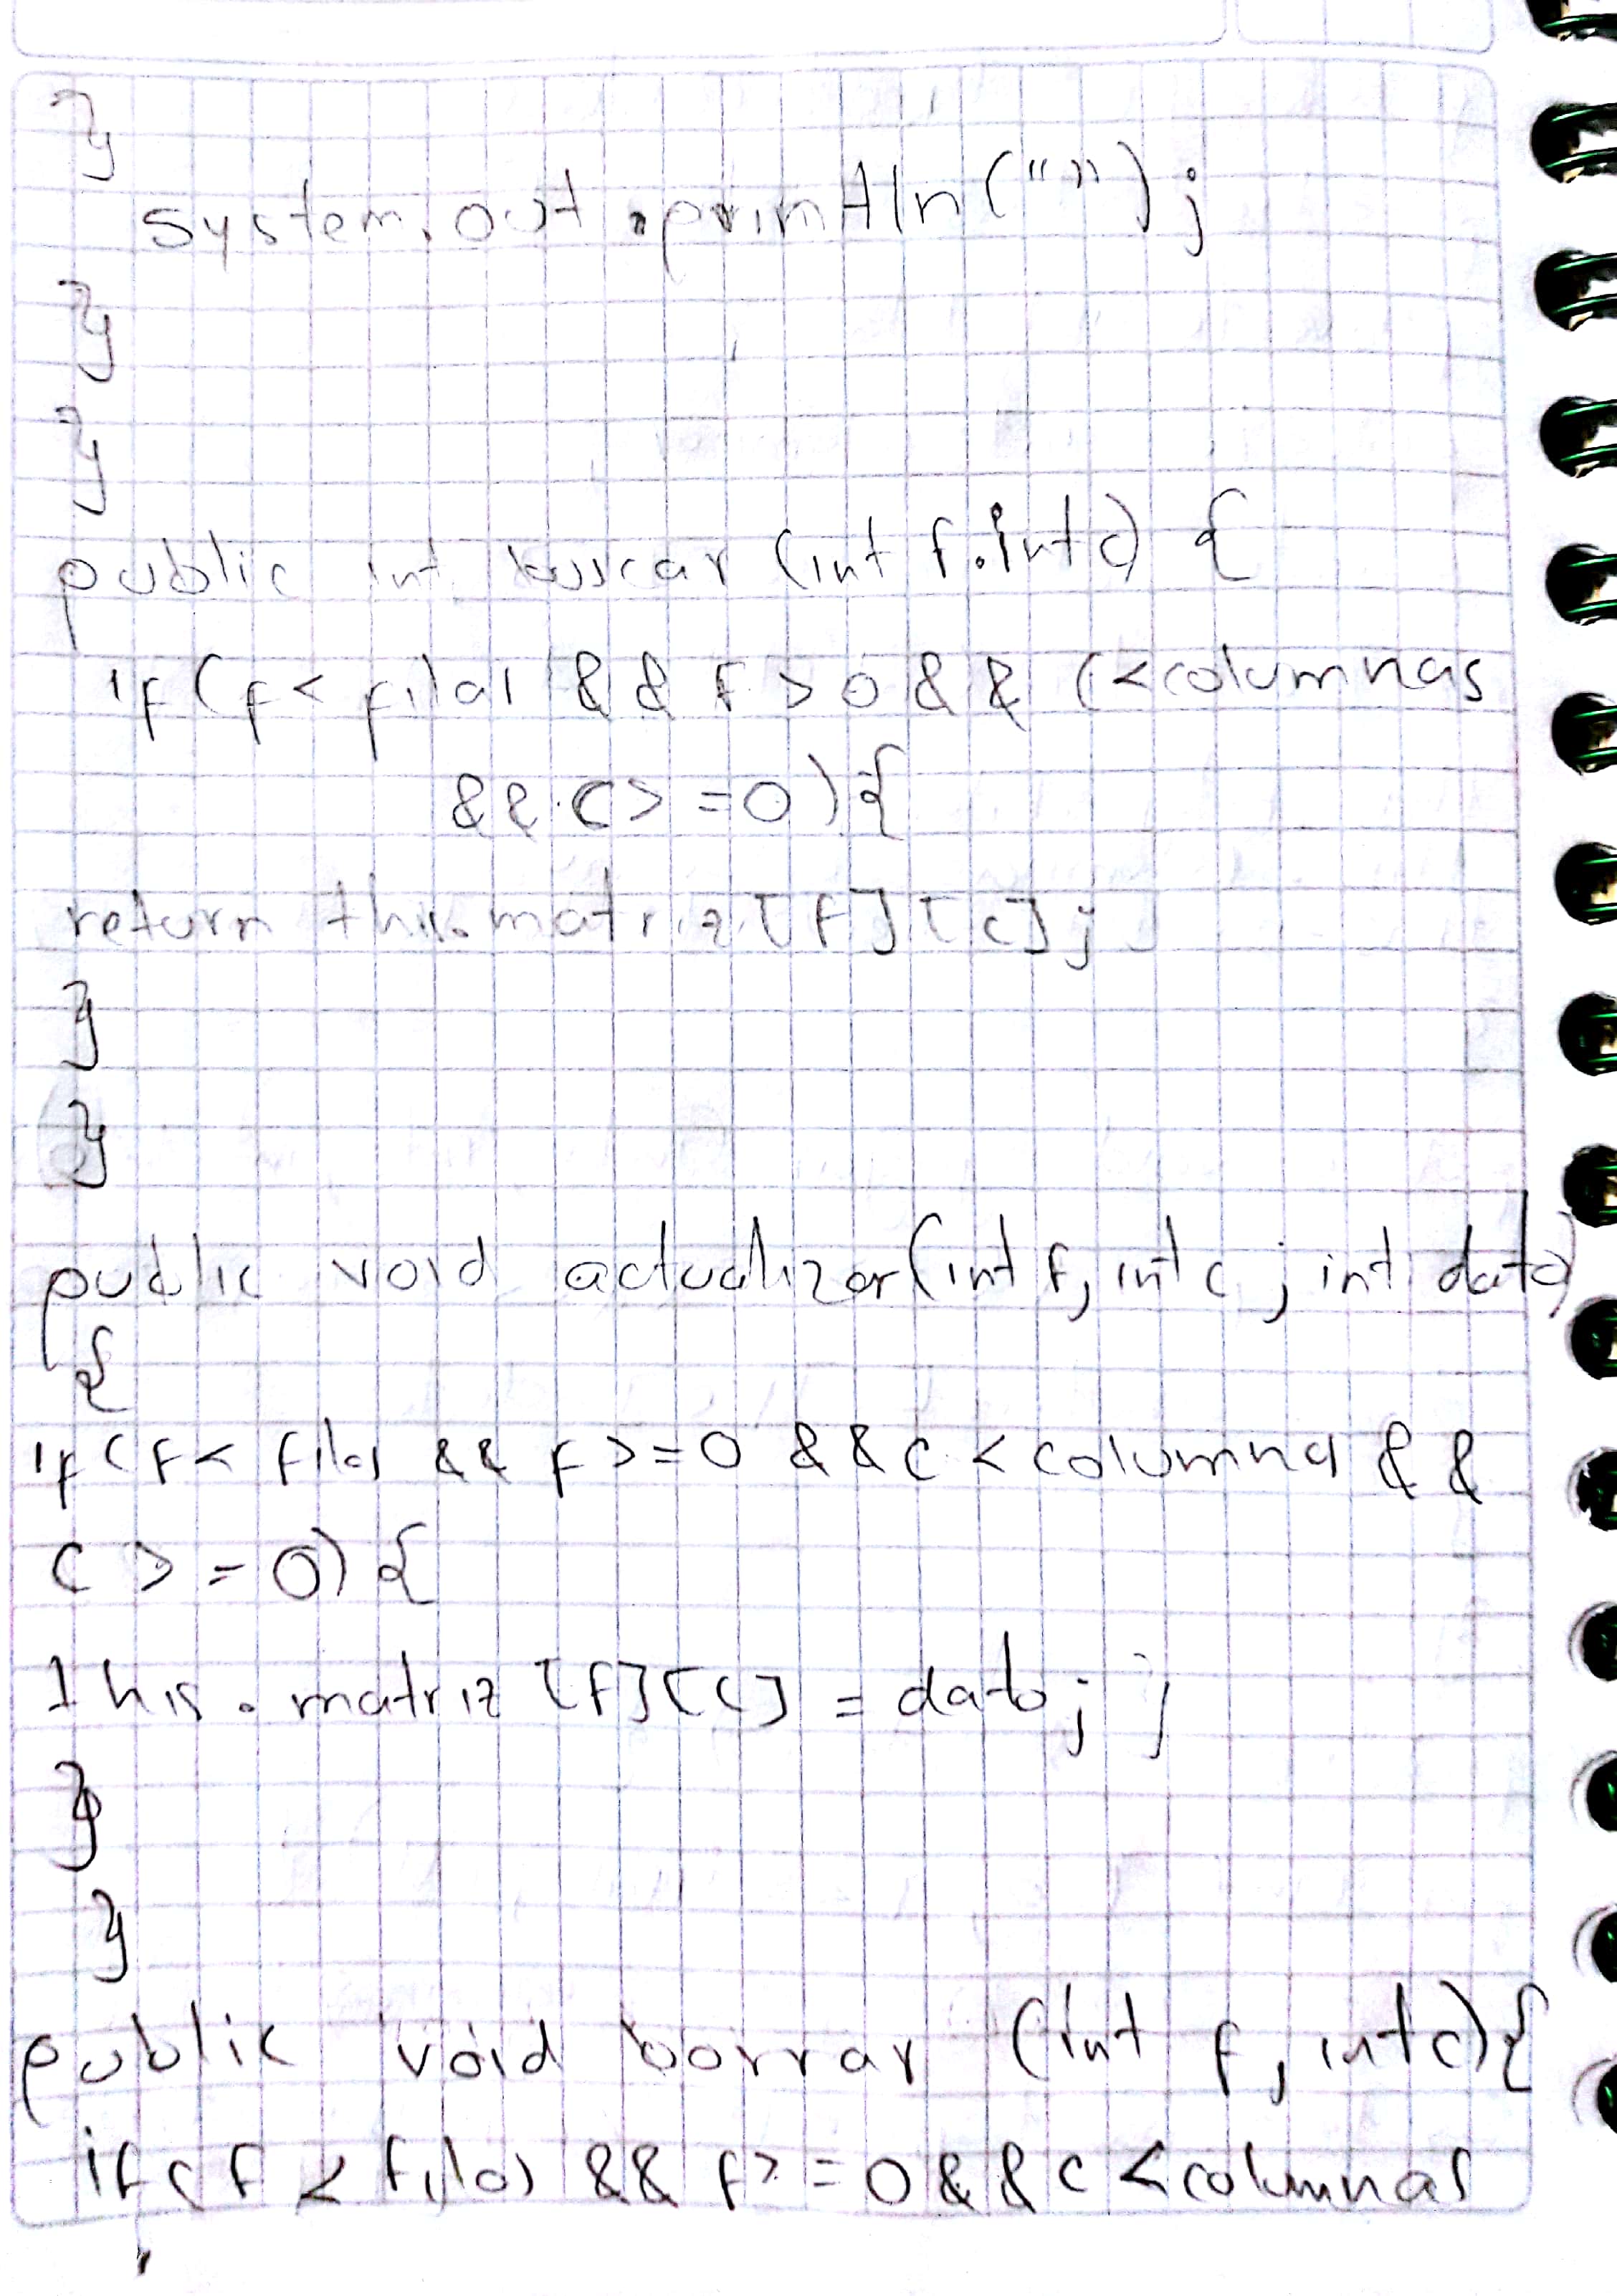 }
system.out.printtln("");
}
}
public int buscar (int f.int c) {
if (f < filas && f > 0 && c < columnas
&& c > =0) {
return this.matriz [f] [c];
}
}
public void actualizar (int f, int c ; int dato)
{
if (f < filas && f >= 0 && c < columnas &&
c > = 0) {
this . matriz [f] [c] = dato; ;
}
}
public void borrar (int f, int c) {
if ( f < filas && f > = 0 && c < columnas